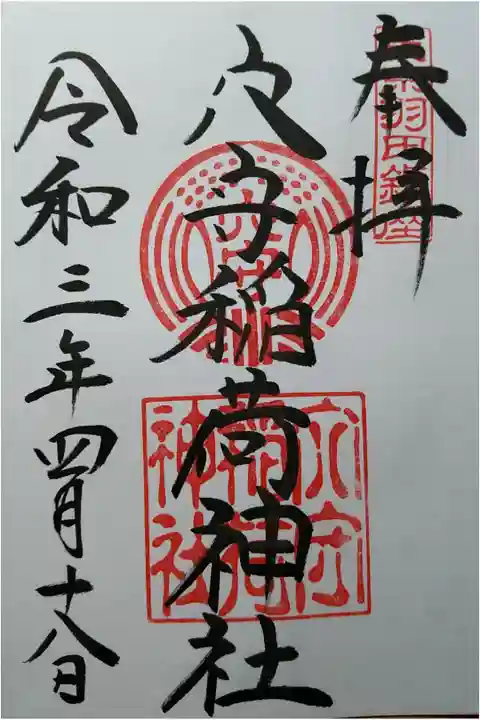 奉拝
羽田鎮座
穴守稲荷神社
穴守
穴守
稲荷
神社
令和三年四月十八日